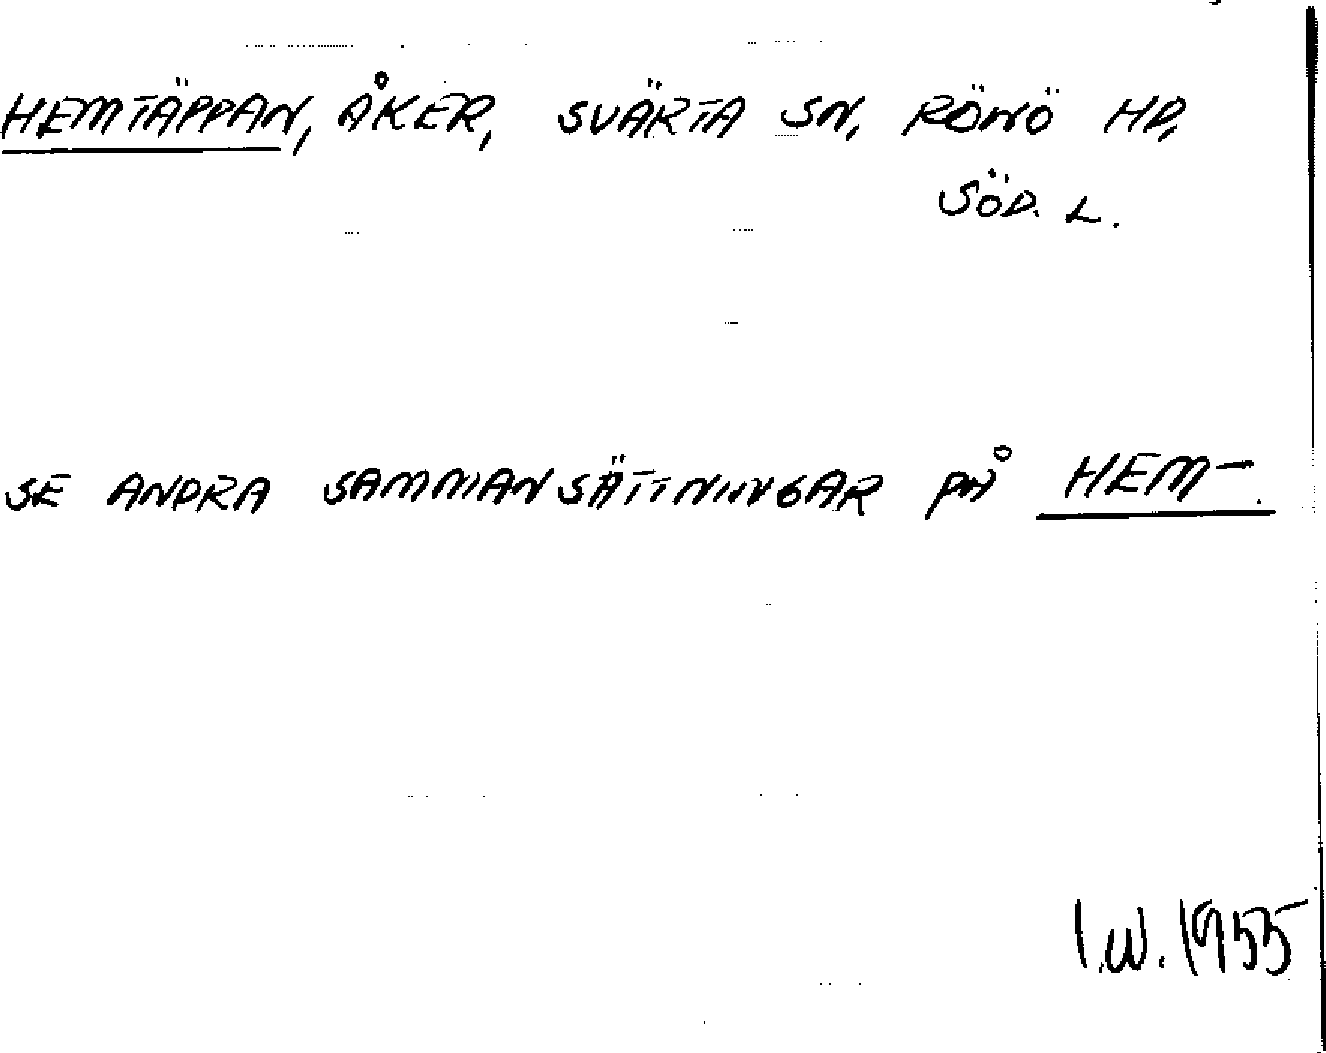 HEMTÄPPAN, ÅKER, SVÄRTA SN, RÖNÖ HD,
SÖD. L.
SE ANDRA SAMMANSÄTTNINGAR PÅ HEM-.
I.W. 1955